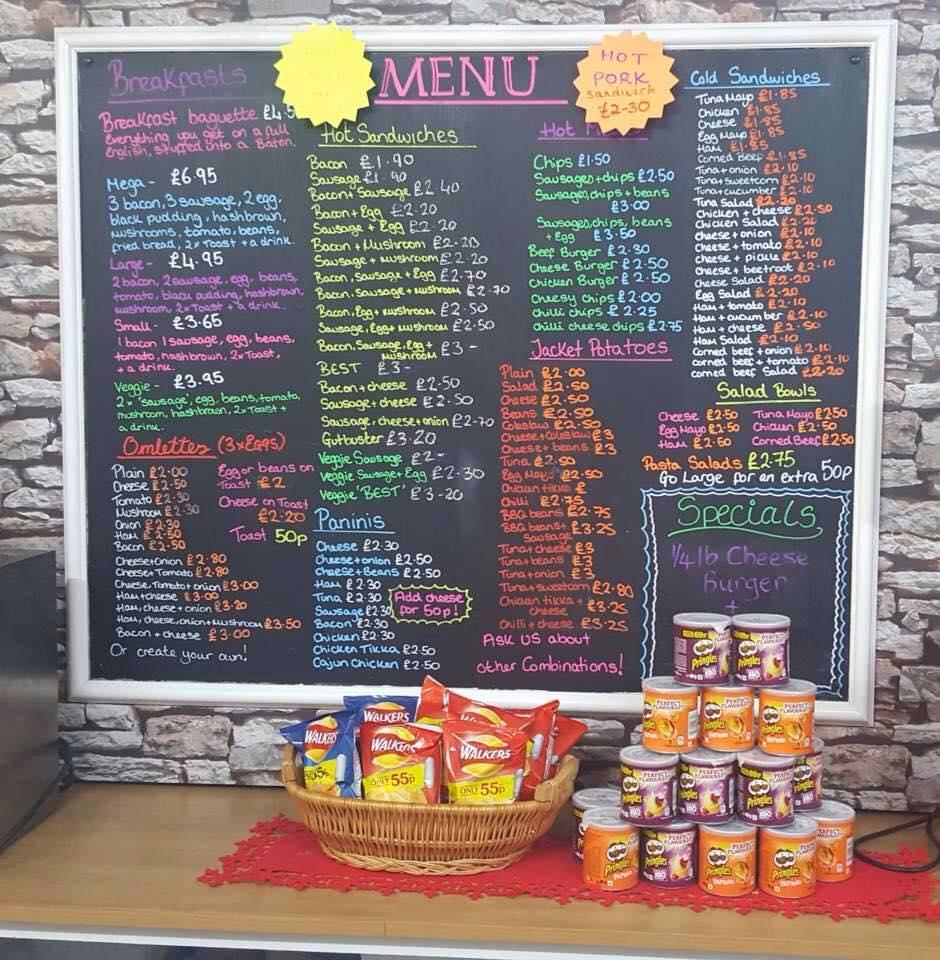 MENU
HOT
PORK
Sandwich
£2-30
Breakfasts
Breakfast baguette
Everything you get on a full
English, stuffed into a Baton.
Mega - £6.95
3 bacon, 3 sausage, 2 egg,
black pudding, hashbrown,
mushrooms, tomato, beans,
fried bread, 2x Toast + a drink.
Large - £4.95
2 bacon, 2 sausage, egg, beans,
tomato, black pudding, hashbrown,
mushroom, 2x Toast + a drink.
Small - £3.65
1 bacon 1 sausage, egg, beans,
tomato, hashbrown, 2x Toast,
+ a drink.
Veggie - £3.95
2x 'sausage', egg, beans, tomato,
mushroom, hashbrown, 2x Toast +
a drink
Omlettes (3x Eggs)
Plain £2.00
Cheese £2.50
Tomato £2.30
Mushroom £2.30
Onion £2.30
Ham £2.50
Bacon £2.50
Cheese+Onion £2.80
Cheese+Tomato £2.80
Cheese, Tomato + onion £3.00
Ham+cheese £3.00
Ham, cheese + onion £3.20
Ham, cheese, onion+Mushroom £3.50
Bacon + cheese £3.00
Or create your own!
Egg or beans on
Toast £2
Cheese on Toast
£2.20
Toast 50p
Hot Sandwiches
Bacon £1.90
Sausage £1.90
Bacon+Sausage £2.40
Bacon + Egg £2.20
Sausage + Egg £2.20
Bacon + Mushroom £2.20
Sausage + Mushroom £2.20
Bacon, Sausage + Egg £2.70
Bacon, Sausage + Mushroom £2.70
Bacon, Egg + Mushroom £2.50
Sausage, Egg + Mushroom £2.50
Bacon, Sausage, Egg +
Mushroom £3 -
BEST £3 -
Bacon + cheese £2.50
Sausage + cheese £2.50
Sausage, cheese + onion £2-70
Gutbuster £3.20
Veggie Sausage £2 -
Veggie Sausage + Egg £2-30
Veggie 'BEST' £3-20
Paninis
Cheese £2.30
Cheese + onion £2.50
Cheese + Beans £2.50
Ham £2.30
Tuna £2.30
Sausage £2.30
Bacon £2.30
Chicken £2.30
Chicken Tikka £2.50
Cajun Chicken £2.50
Add cheese
for 50p!
Hot
Chips £1.50
Sausages + chips £2.50
Sausages, chips + beans
£3.00
Sausages, chips, beans
+ Egg £3.50
Beef Burger £2.30
Cheese Burger £2.50
Chicken Burger £2.50
Cheesy chips £2.00
Chilli chips £2.25
chilli cheese chips £2.75
Jacket Potatoes
Plain £2.00
Salad £2.50
Cheese £2.50
Beans £2.50
Coleslaw £2.50
Cheese + Coleslaw £3
Cheese + beans £3
Tuna £2.50
Egg Mayo £2.50
Chicken tikka £
Chilli £2.75
BBQ beans £2.75
BBQ beans + £3.25
Sausage
Tuna + cheese £3
Tuna + beans £3
Tuna + onion £3
Tuna + sweetcorn £2.80
Chicken tikka + £3.25
Cheese
Chilli + cheese £3.25
Ask us about
other Combinations!
Cold Sandwiches
Tuna Mayo £1.85
Chicken £1.85
Cheese £1.85
Egg Mayo £1.85
Ham £1.85
Corned Beef £1.85
Tuna + onion £2.10
Tuna + sweetcorn £2.10
Tuna + cucumber £2.10
Tuna Salad £2.20
Chicken + cheese £2.50
Chicken Salad £2.20
Cheese + onion £2.10
Cheese + tomato £2.10
Cheese + pickle £2.10
Cheese + beetroot £2.10
Cheese Salad £2.20
Egg Salad £2.20
Ham + tomato £2.10
Ham + cucumber £2.10
Ham + cheese £2.50
Ham Salad £2.10
Corned beef + onion £2.10
Corned beef + tomato £2.10
corned beef Salad £2.20
Salad Bowls
Cheese £2.50 Tuna Mayo £2.50
Egg Mayo £2.50 Chicken £2.50
Ham £2.50 Corned Beef £2.50
Pasta Salads £2.75
Go Large for an extra 50p
Specials
1/4 lb Cheese
Burger
+
WALKERS
WALKERS
WALKERS
WALKERS
ONLY 55p
ONLY 55p
Pringles
Pringles
Pringles
Pringles
Pringles
Pringles
Pringles
Pringles
Pringles
Pringles
Pringles
Pringles